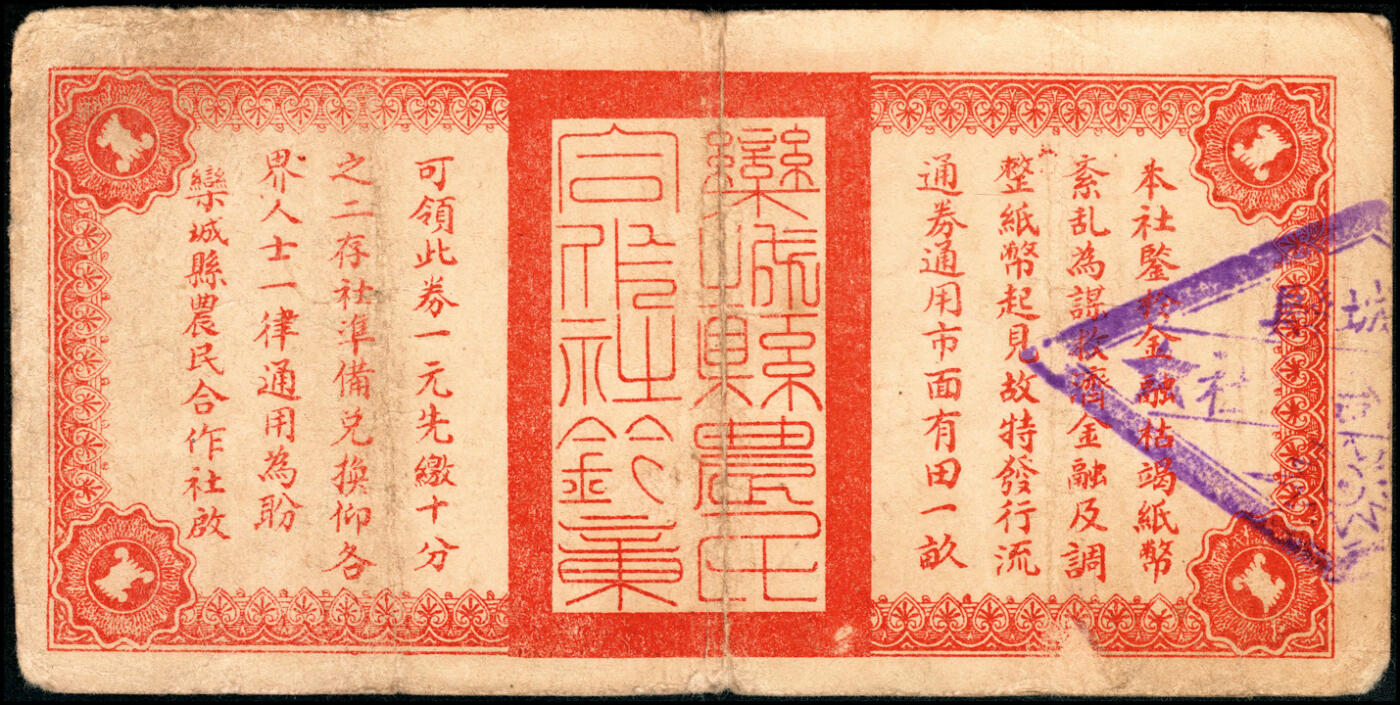 本社鑒於金融枯竭紙幣
紊乱為謀救濟金融及調
整紙幣起見故特發行流
通券通用市面有田一畝
欒城縣農民
合作社
可領此券一元先繳十分
之二存社準備兑換仰各
界人士一律通用為盼
欒城縣農民合作社啟
城縣
社